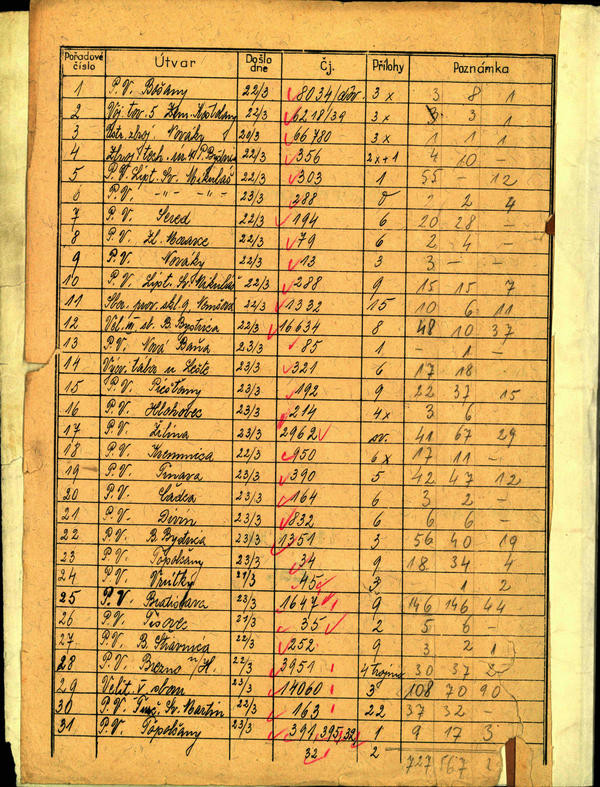 Pořadové číslo Útvar Došlo dne Čj. Přílohy Poznámka
1 P.V. Bošany 22/3 8034/dôv. 3x 3 8 1
2 Voj. tov. 5 Zem. 22/3 6218/39 3x 3 3 1
3 zbroj. Nováky 20/3 66780 3x 1 1 1
4 Zbroj. tech. 22/3 356 2x+1 4 10 –
5 P.V. Lipt. Sv. Mikuláš 22/3 303 1 55 – 12
6 P.V. –"– –"– 23/3 288 2 4
7 P.V. Sereď 22/3 194 6 20 28 –
8 P.V. Zl. Moravce 22/3 79 6 2 4 –
9 P.V. Nováky 22/3 13 3 3 – –
10 P.V. Lipt. Sv. Mikuláš 22/3 288 9 15 15 7
11 Sbor. prov. skl. 9 Nemšová 22/3 1332 15 10 6 11
12 Vel. III. sb. B. Bystrica 22/3 16634 8 48 10 37
13 P.V. Nová Baňa 23/3 85 1 – 1 –
14 Výcv. tábor u Lešte 23/3 321 6 17 18
15 P.V. Piešťany 23/3 192 9 22 37 15
16 P.V. Hlohovec 23/3 214 4x 3 6
17 P.V. Žilina 23/3 2962 sv. 41 67 29
18 P.V. Kremnica 22/3 950 6x 17 11 –
19 P.V. Trnava 23/3 390 5 42 47 12
20 P.V. Čadca 23/3 164 6 3 2 –
21 P.V. Divín 23/3 832 6 6 6 –
22 P.V. B. Bystrica 23/3 1351 3 56 40 19
23 P.V. Topolčany 23/3 34 9 18 34 4
24 P.V. Vrútky 21/3 45 3 – 1 2
25 P.V. Bratislava 23/3 1647 9 146 146 44
26 P.V. Tisovec 21/3 35 2 5 6 –
27 P.V. B. Štiavnica 22/3 252 9 3 2 1
28 P.V. Brezno n/H. 22/3 3951 4 trojmo 30 37 2
29 Velit. V. sboru 22/3 14060 3 108 70 90
30 P.V. Turč. Sv. Martin 22/3 163 22 37 32 –
31 P.V. Topolčany 23/3 391,395,32 1 9 17 3
32 2 727 567